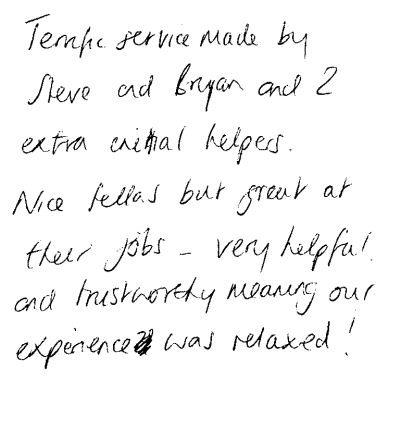 Terrific service made by
Steve and Bryan and 2
extra initial helpers.
Nice fellas but great at
their jobs - very helpful
and trustworthy meaning our
experience was relaxed!